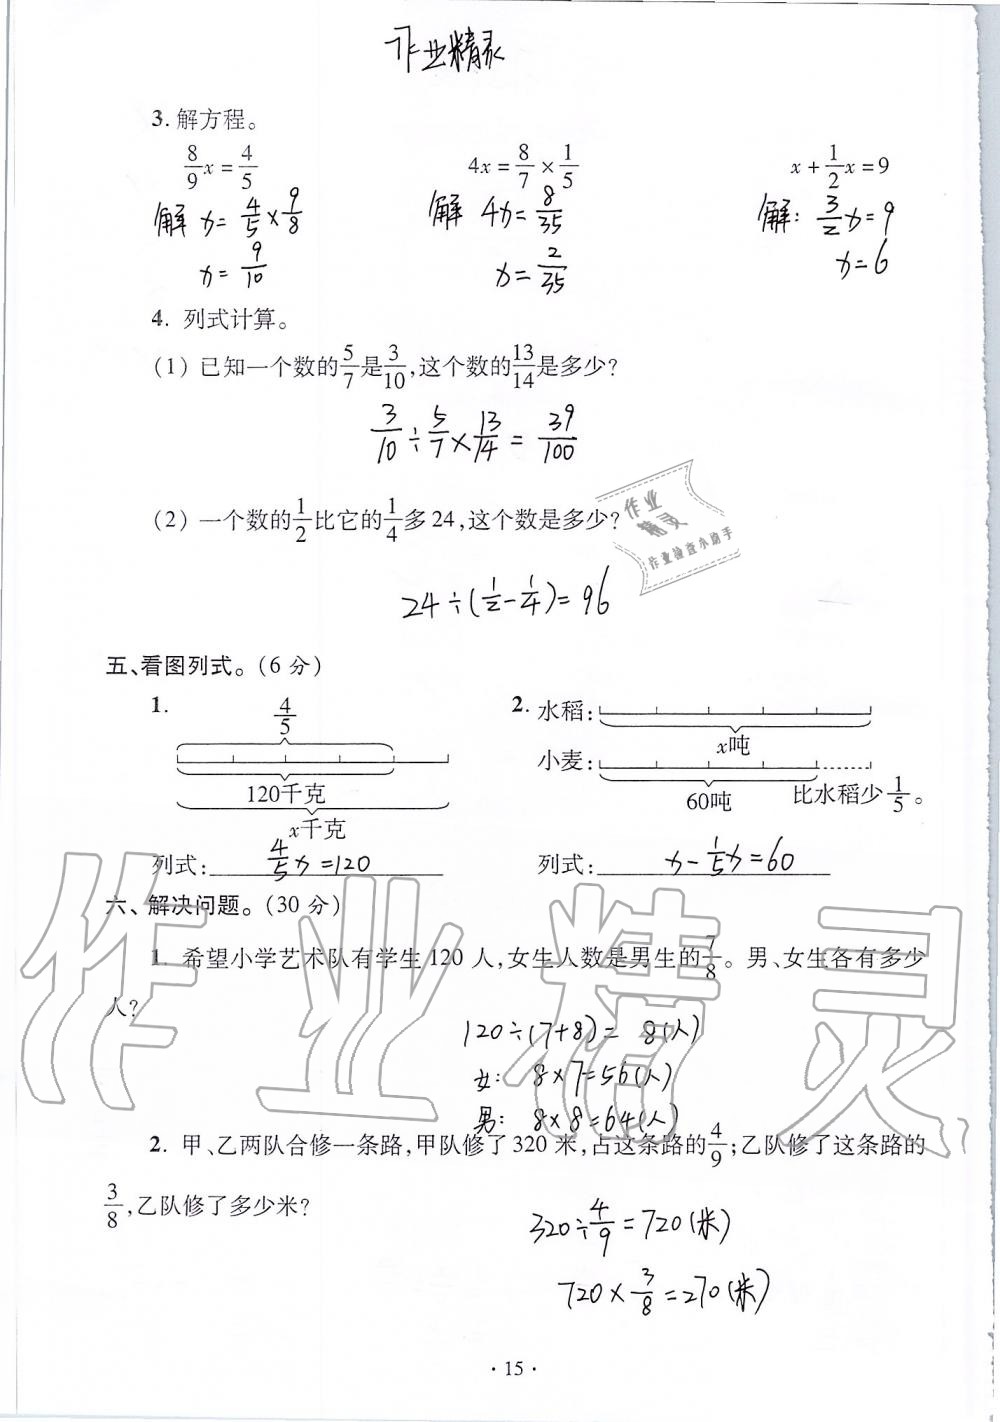 作业精灵
3. 解方程。
8/9 x = 4/5    4x = 8/7 × 1/5    x + 1/2 x = 9
解 x = 4/5 × 9/8    解 4x = 8/35    解: 3/2 x = 9
x = 9/10    x = 2/35    x = 6
4. 列式计算。
(1) 已知一个数的5/7是3/10,这个数的13/14是多少?
3/10 ÷ 5/7 × 13/14 = 39/100
(2) 一个数的1/2比它的1/4多24,这个数是多少?
作业
精灵
作业检查小助手
24÷(1/2-1/4)=96
五、看图列式。(6 分)
1.
4/5
120千克
x千克
列式: 4/5 x=120
2. 水稻:
x吨
小麦:
60吨    比水稻少1/5。
列式: x-1/5x=60
六、解决问题。(30 分)
1. 希望小学艺术队有学生 120 人,女生人数是男生的7/8。男、女生各有多少
人?
120÷(7+8)= 8(人)
女: 8×7=56(人)
男: 8×8=64(人)
2. 甲、乙两队合修一条路,甲队修了 320 米,占这条路的4/9;乙队修了这条路的
3/8,乙队修了多少米?
320÷4/9=720(米)
720×3/8=270(米)
· 15 ·
作业精灵